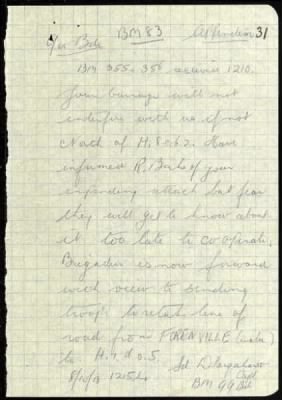 BM 83 Appendix 31
Bde
BM 355 & 356 received 1210.
Your barrage will not
interfere with us if not
North of H.8.c.6.2. Have
informed R. Bde of your
impending attack but fear
they will get to know about
it too late to cooperate.
Brigadier is now forward
with view to sending
troops to retake line of
road from FRENVILLE
to H.
8/10/18 1254
Capt
BM 99 Bde